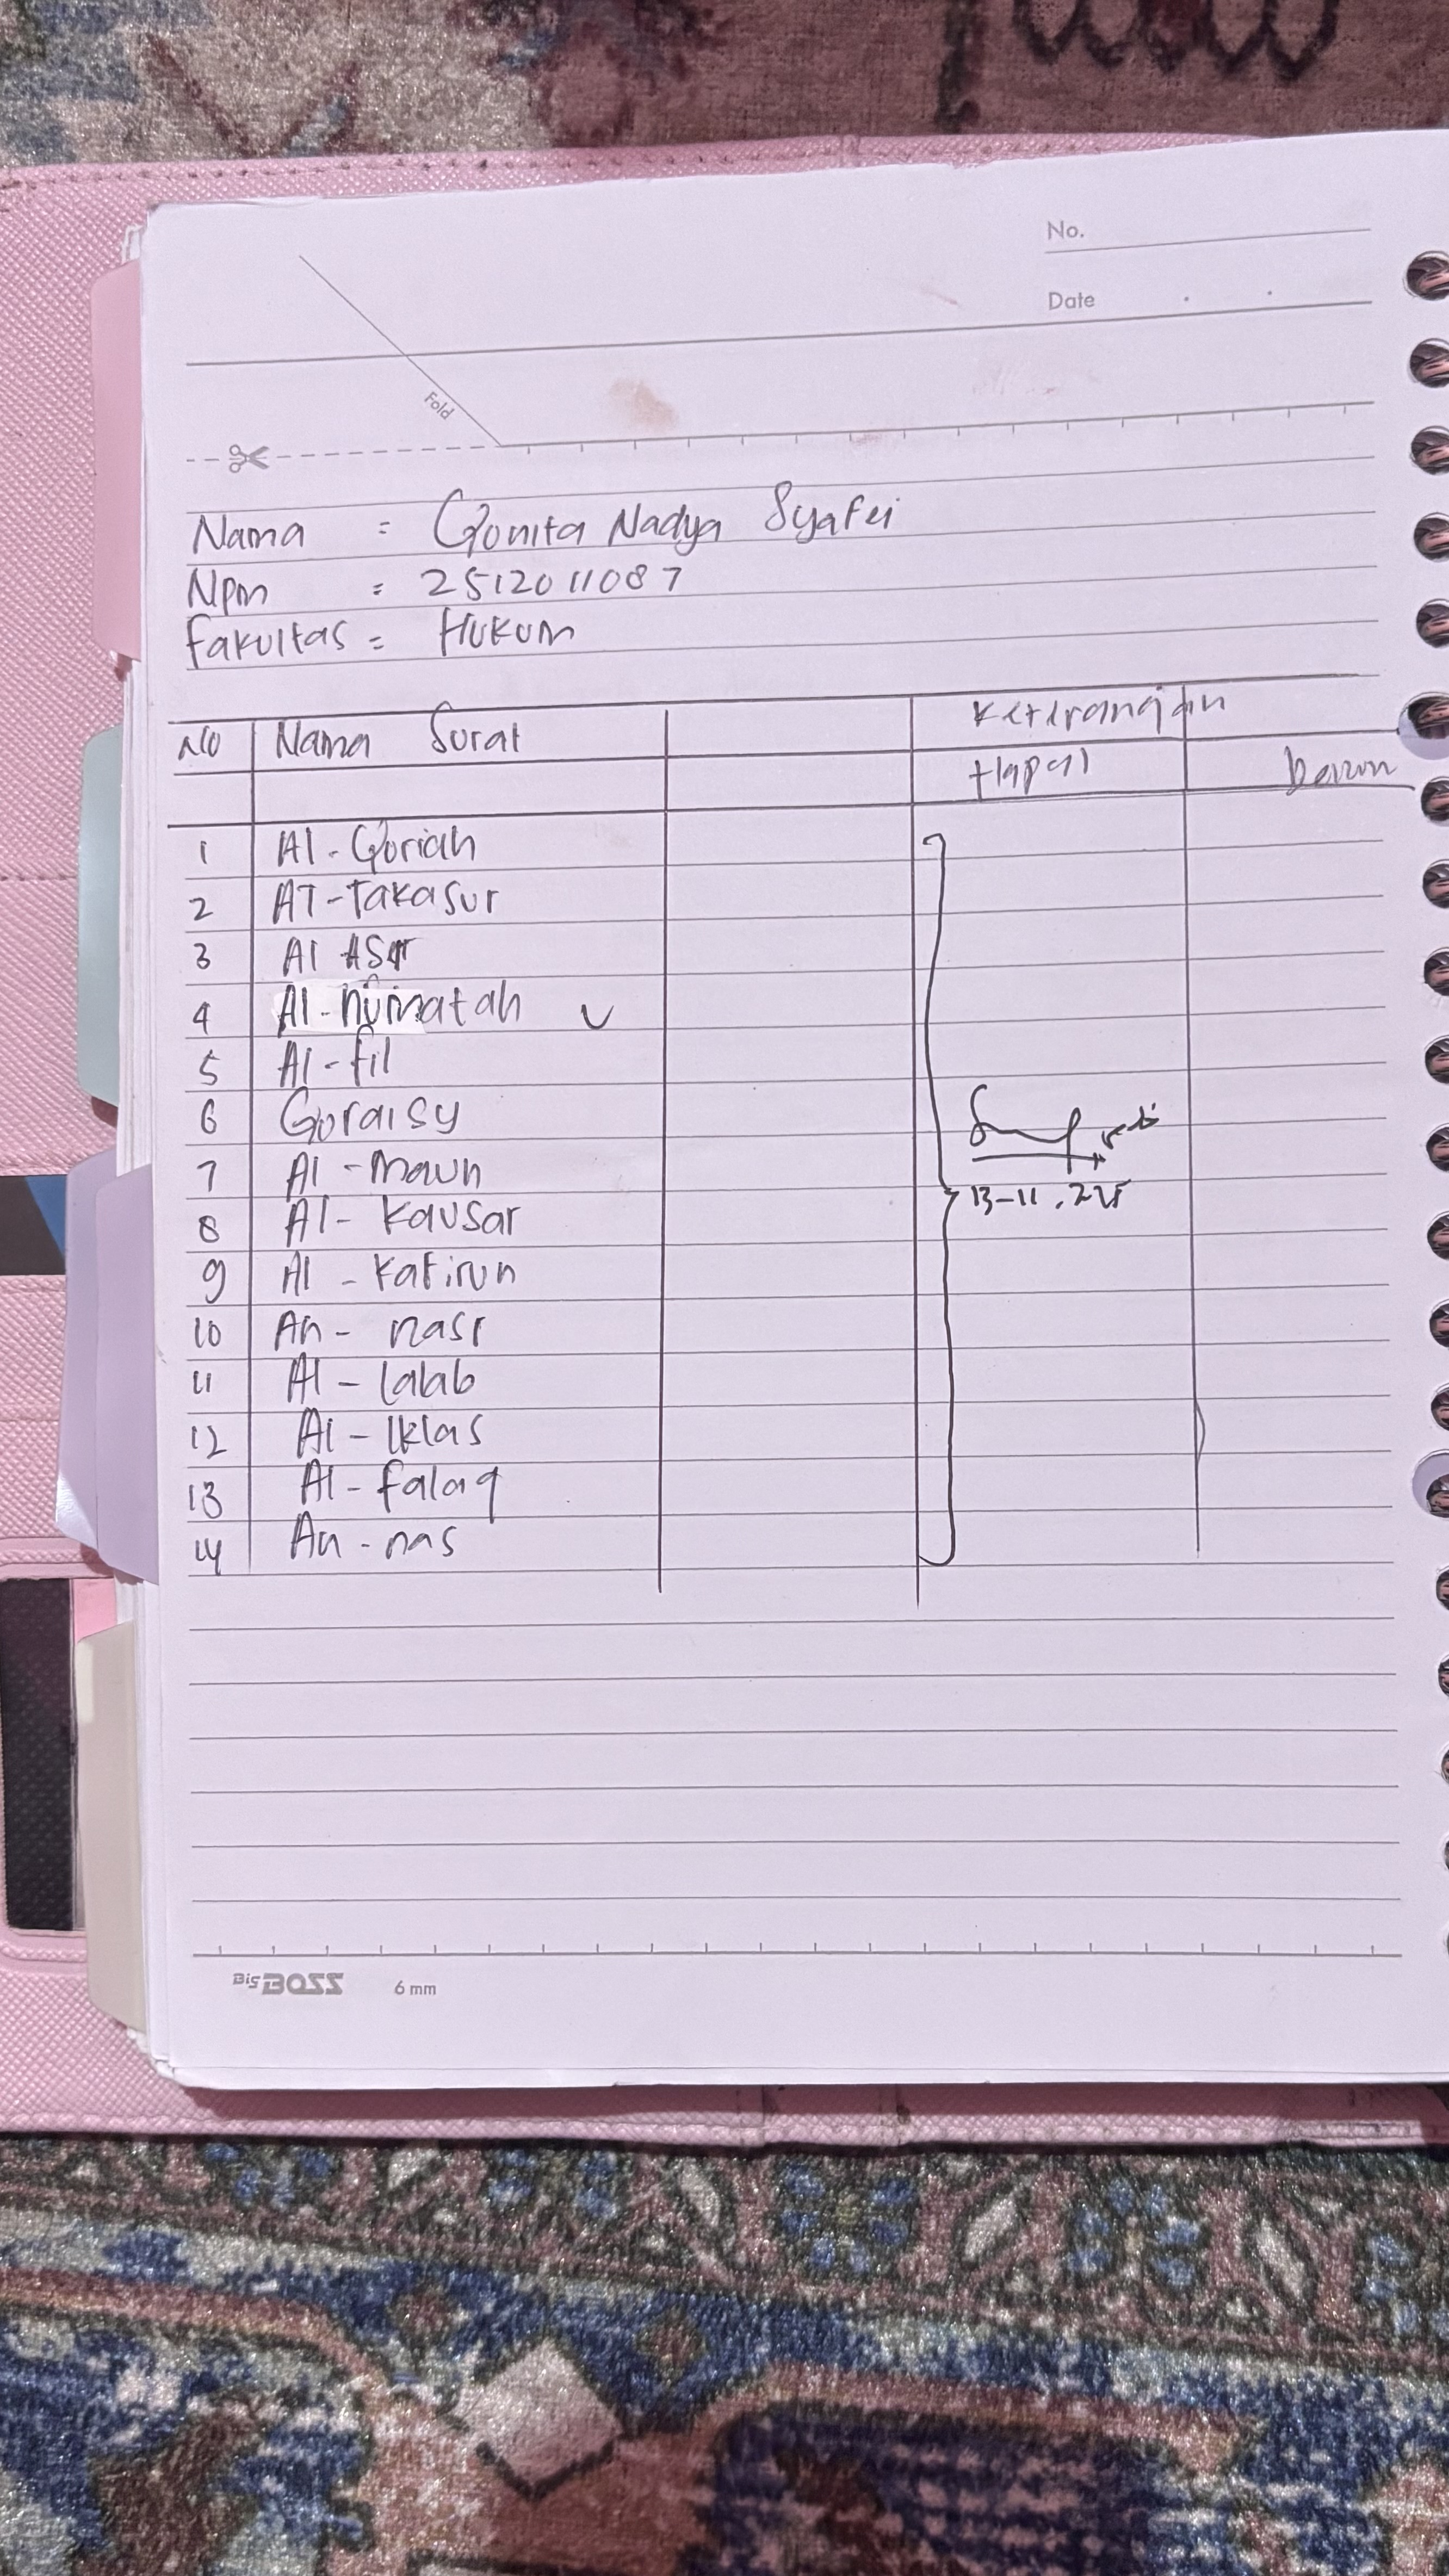 No.
Date
Fold
Nama : Qonita Nadya Syafei
Npm : 2512011087
Fakultas = Hukum
No Nama Surat Keterangan
Hapal belum
1 Al-Qoriah
2 AT-Takasur
3 Al ASr
4 Al-humatah
5 Al-fil
6 Quraisy
7 Al-maun
8 Al-kausar
13-11.225
9 Al-kafirun
10 An-nasr
11 Al-lahab
12 Al-Iklas
13 Al-falaq
14 An-nas
Big BOSS 6 mm